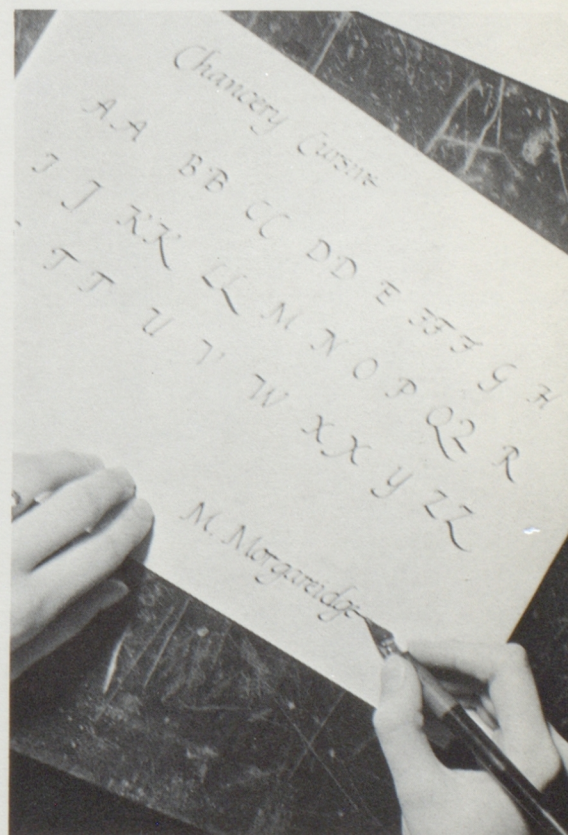 Chancery Cursive
A A B B C C D D E F F F G H
I J K K L L M N O P Q Q R
T T U V W X X Y Z Z
M. Morgareidge
A